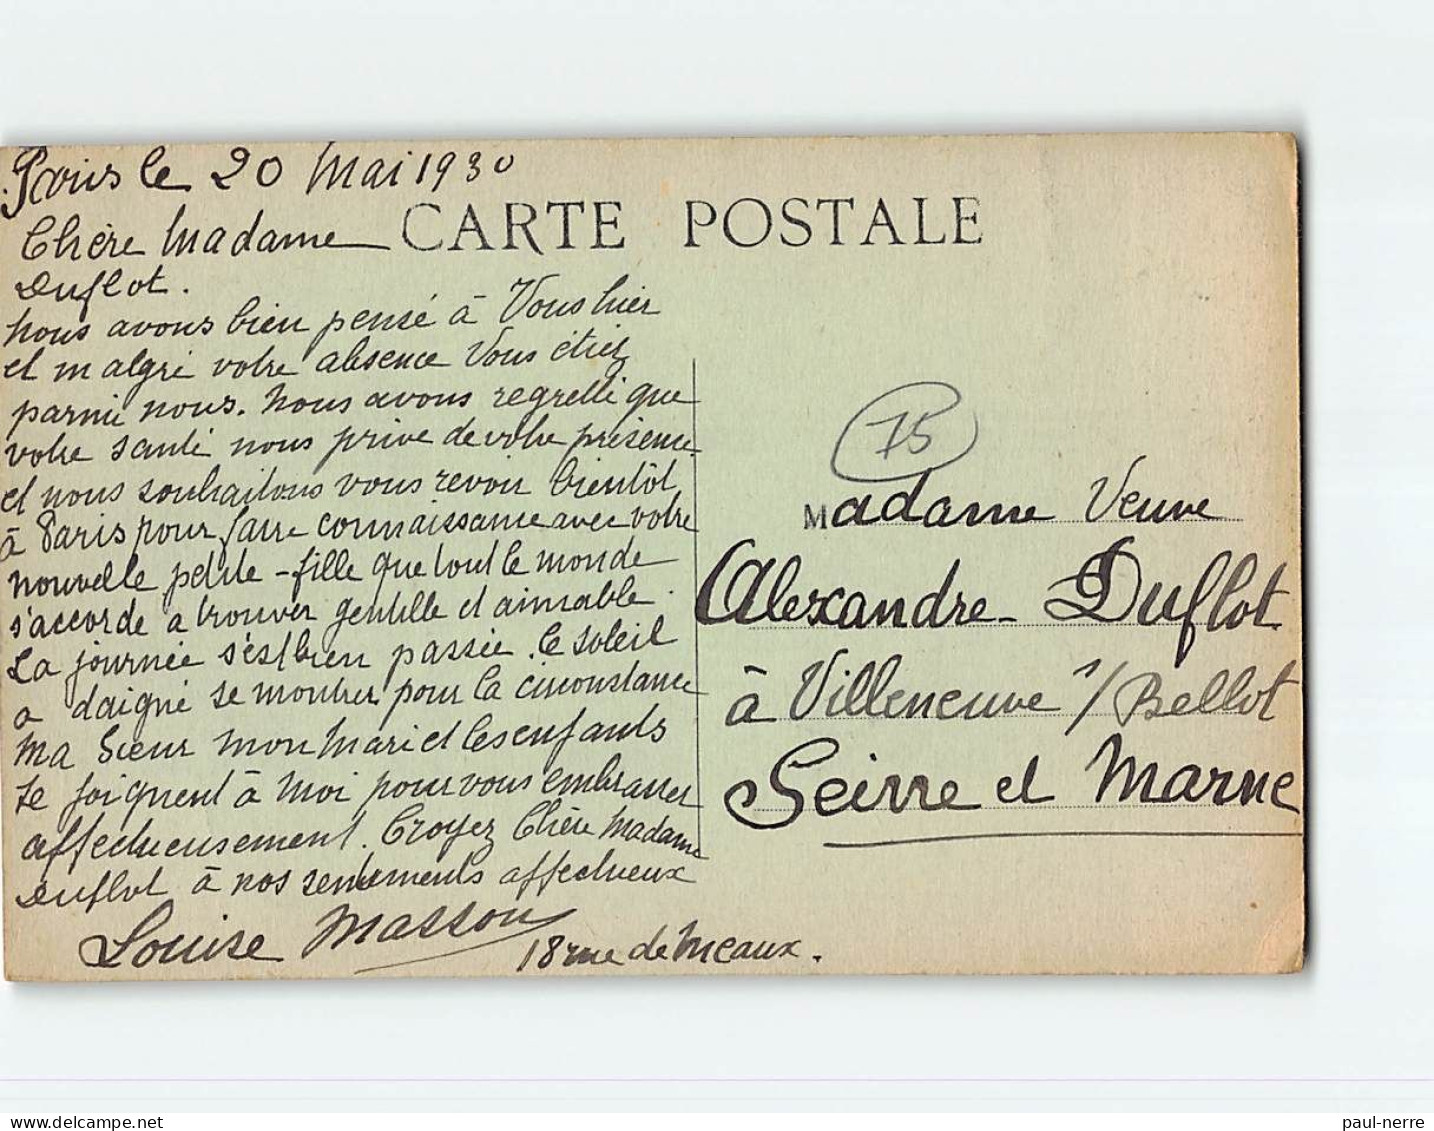 Paris le 20 Mai 1930
CARTE POSTALE
Chère Madame
Duflot.
Nous avons bien pensé à Vous hier
et malgré votre absence Vous étiez
parmi nous. Nous avons regretté que
votre santé nous prive de votre présence
et nous souhaitons vous revoir bientôt
à Paris pour faire connaissance avec votre
nouvelle petite-fille que tout le monde
s'accorde a trouver gentille et aimable.
La journée s'est bien passée. Le soleil
a daigné se montrer pour la circonstance
Ma Sœur mon Mari et les enfants
se joignent à Moi pour vous embrasser
affectueusement. Croyez Chère Madame
Duflot à nos sentiments affectueux
Louise Masson
18 rue de Meaux.
75
Madame Veuve
Alexandre Duflot
à Villeneuve s/ Bellot
Seine et Marne
paul-nerre